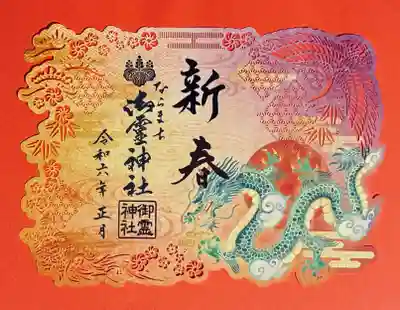 新春
ならまち
御霊神社
御霊
神社
令和六年 正月